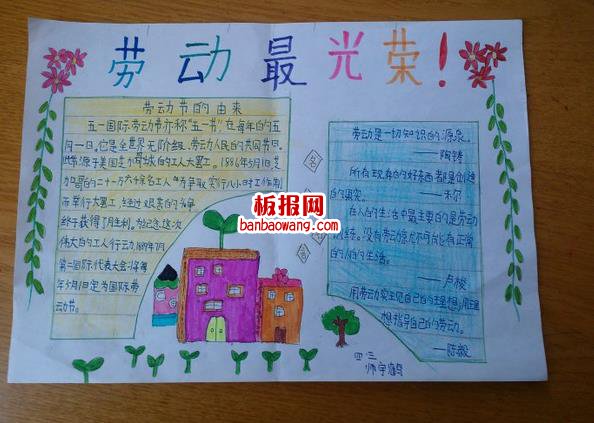 劳动最光荣!
劳动节的由来
五一国际劳动节亦称"五一节",在每年的五
月一日。它是全世界无阶级、劳动人民的共同节日。
此节源于美国芝加哥城的工人大罢工。1886年5月1日,芝
加哥的二十一万六千余名工人为争取实行八小时工作制
而举行大罢工,经过艰苦的
终于获得了胜利。为纪念这次
伟大的工人行动,1889年7月
第二国际代表大会
年5月1日定为国际劳
动节。
名
言
劳动是一切知识的源泉。
——陶铸
所有现存的好东西都是创造
的果实。
——米尔
在人的生活中最主要的是劳动
训练。没有劳动就不可能有正常
的人的生活。
——卢梭
用劳动实现自己的理想,用理
想指导自己的劳动。
——陈毅
四三
师宇
板报网
banbaowang.com